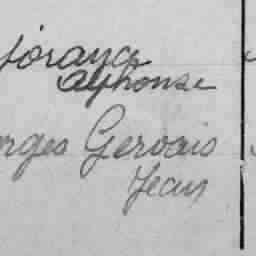 Alphonse
rges Gervais
Jean